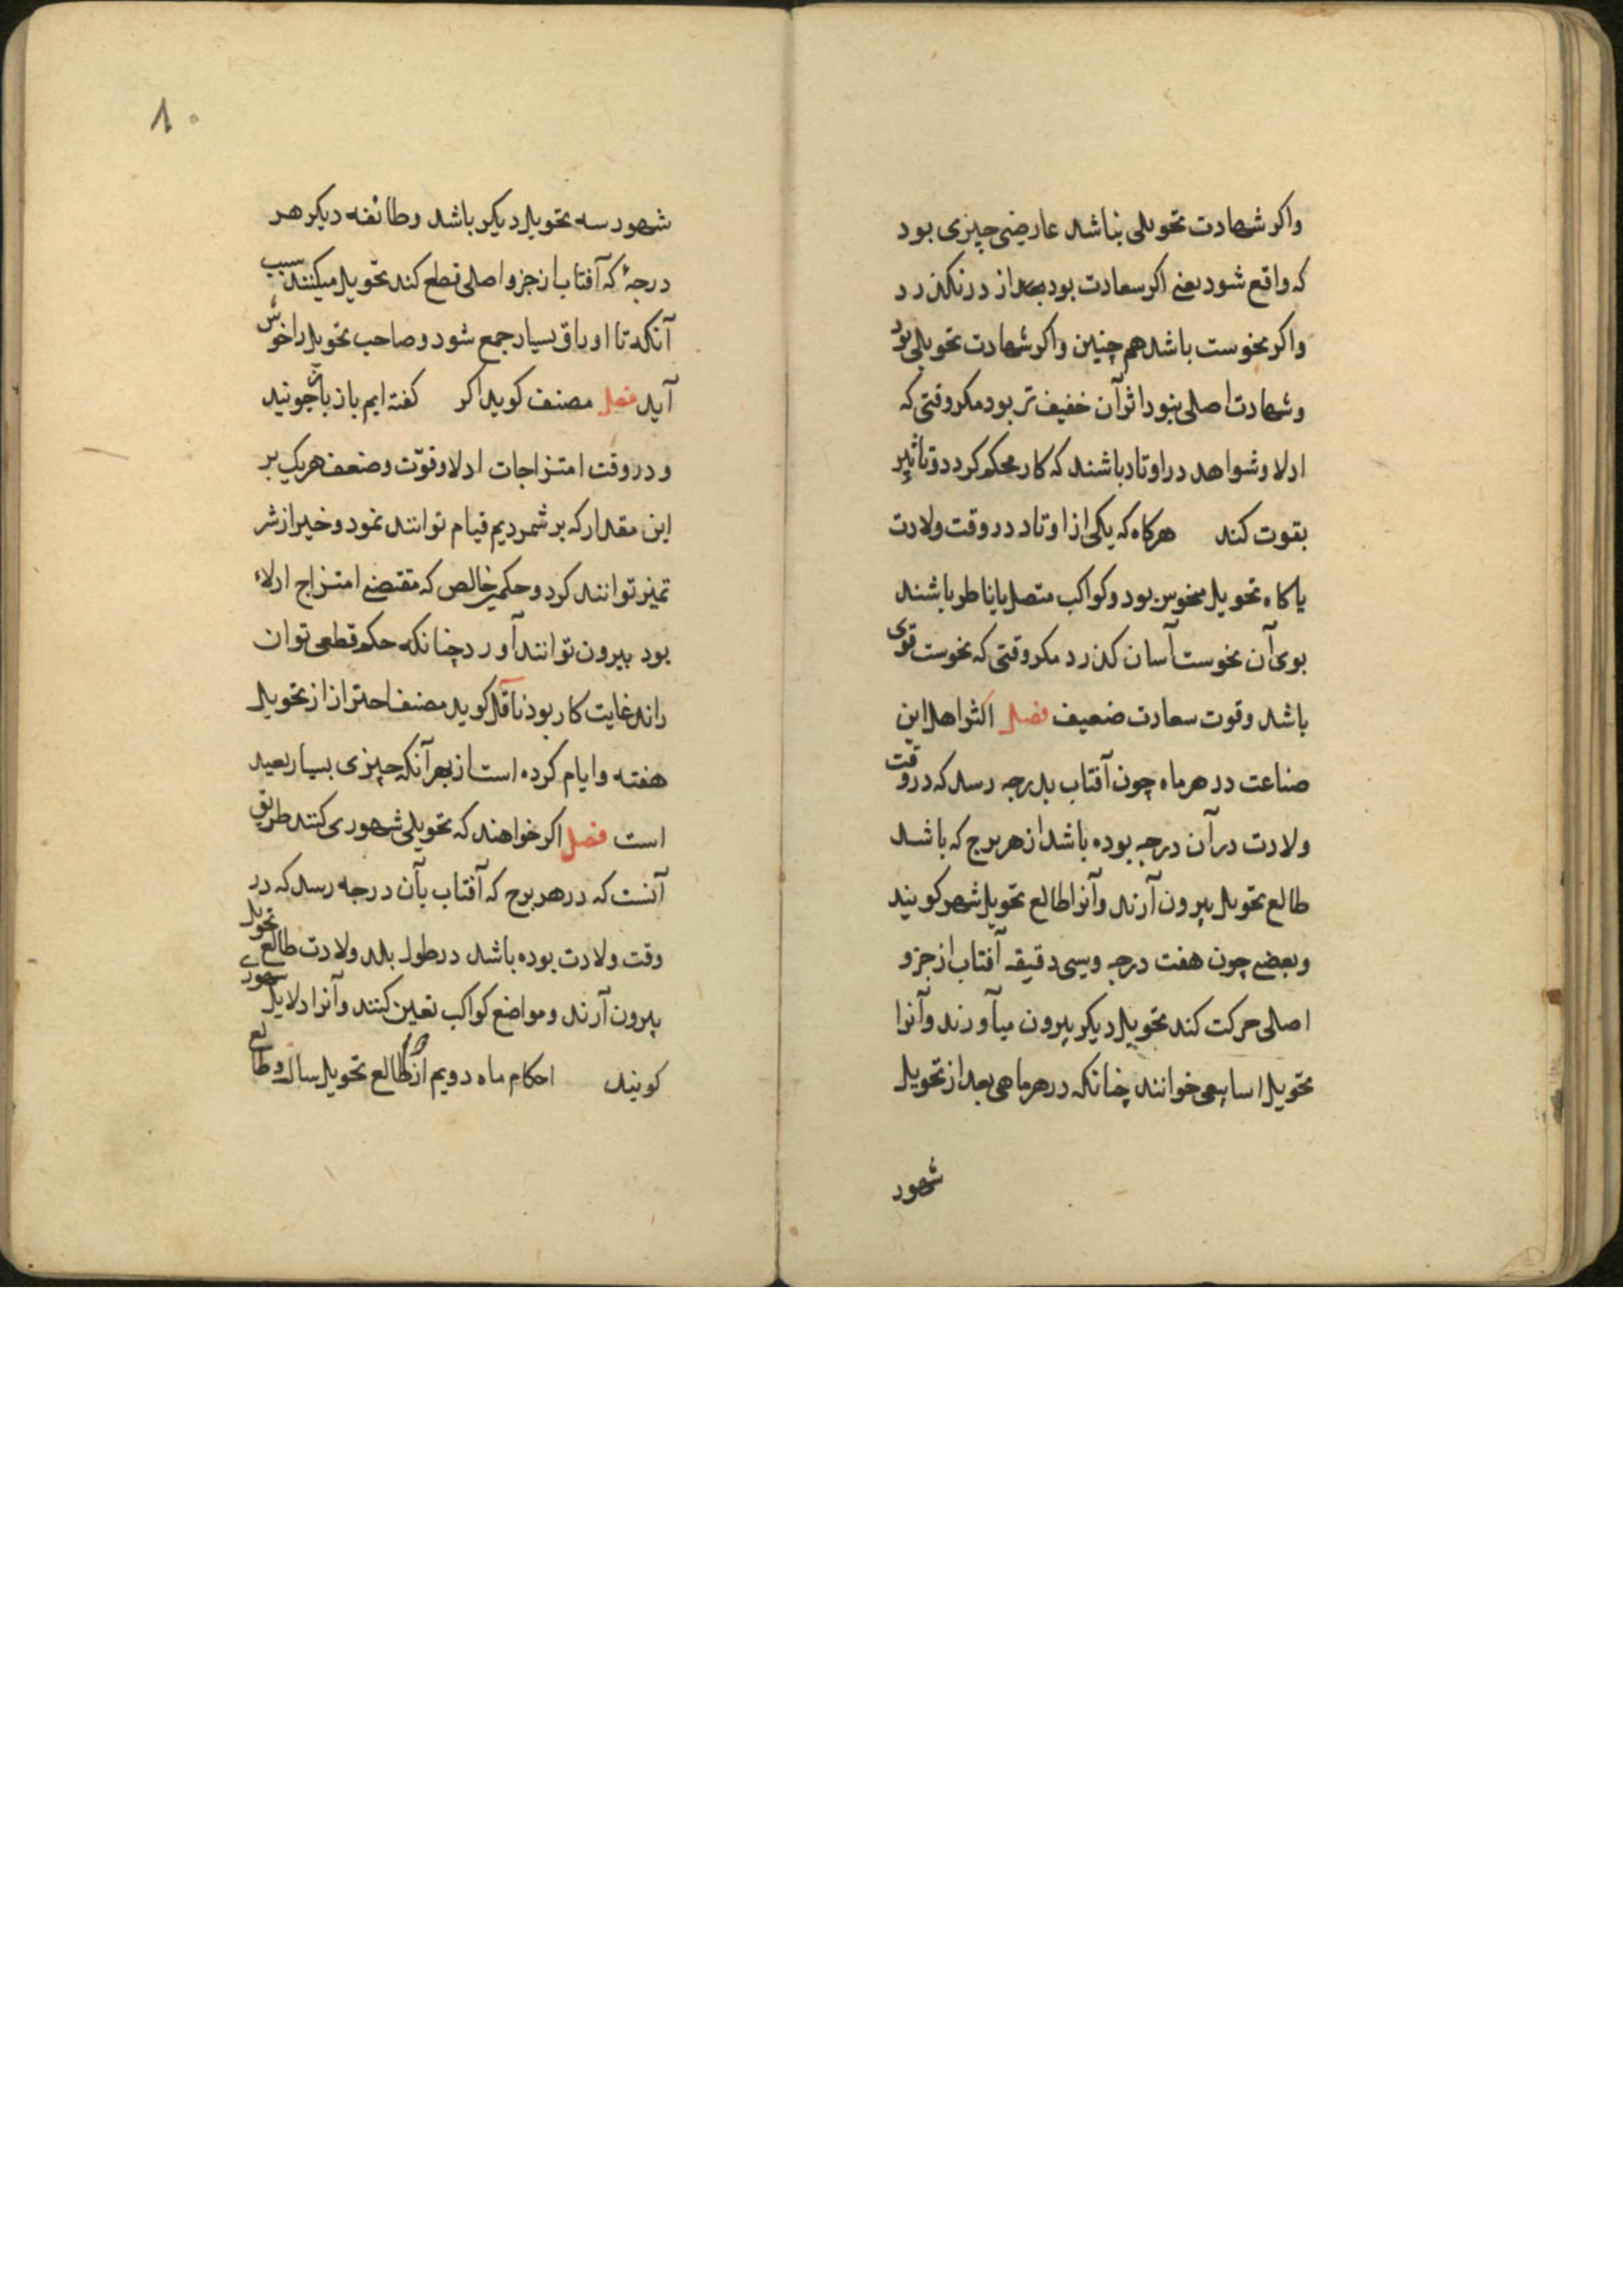 واکر شهادت تحویلی نباشد عارضی چیزی بود
که واقع شود یعنی اکر سعادت بود بعد از در نکذرد
واکر نحوست باشد هم چنین واکر شهادت تحویلی بود
وشهادت اصلی نبود اثر آن خفیف تر بود مکر وقتی که
ادلا وشواهد در اوتاد باشند که کار محکم کردد وتاثیر
بقوت کند هرکاه که یکی از اوتاد در وقت ولادت
یا کاه تحویل منحوس بود وکواکب متصل یا ناظر باشند
بوی آن نحوست آسان کذرد مکر وقتی که نحوست قوی
باشد وقوت سعادت ضعیف فصل اکثر اهل این
صناعت در هر ماه چون آفتاب بدرجه رسد که در وقت
ولادت در آن درجه بوده باشد از هر برج که باشد
طالع تحویل بیرون آرند وآنرا طالع تحویل شهر کویند
وبعضی چون هفت درجه وسی دقیقه آفتاب از جزو
اصلی حرکت کند تحویل دیکر بیرون میآورند وآنرا
تحویل اسابیعی خوانند چنانکه در هر ماهی بعد از تحویل
شهور
۸۰
شهور سه تحویل دیکر باشد وطائفه دیکر هر
درجهٔ که آفتاب از جزو اصلی قطع کند تحویل میکنند سبب
آنکه تا اوراق بسیار جمع شود وصاحب تحویل را خوش
آید فصل مصنف کوید اکر کفته ایم باز جویند
ودر وقت امتزاجات ادلا وقوّت وضعف هریک بر
این مقدار که برشمردیم قیام توانند نمود وخیر از شر
تمیز توانند کرد وحکمی خالص که مقتضی امتزاج ادلاء
بود بیرون توانند آورد چنانکه حکم قطعی توان
راند غایت کار بود ناقل کوید مصنف احتراز از تحویل
هفته وایام کرده است از بهر آنکه چیزی بسیار بعید
است فصل اکر خواهند که تحویلی شهوری کنند طریق
آنست که در هر برج که آفتاب بآن درجه رسد که در
وقت ولادت بوده باشد در طول بلد ولادت طالع تحویل
بیرون آرند ومواضع کواکب تعین کنند وآنرا دلایل شهوری
کویند احکام ماه دویم از طالع تحویل سال وطالع